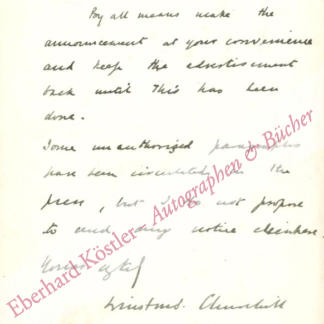 By all means make the
announcement at your convenience
and keep the advertisement
back until this has been
done.
Some unauthorized paragraphs
have been circulated in the
press, but I do not propose
to send any notice elsewhere.
Winston S. Churchill
Eberhard Köstler - Autographen & Bücher